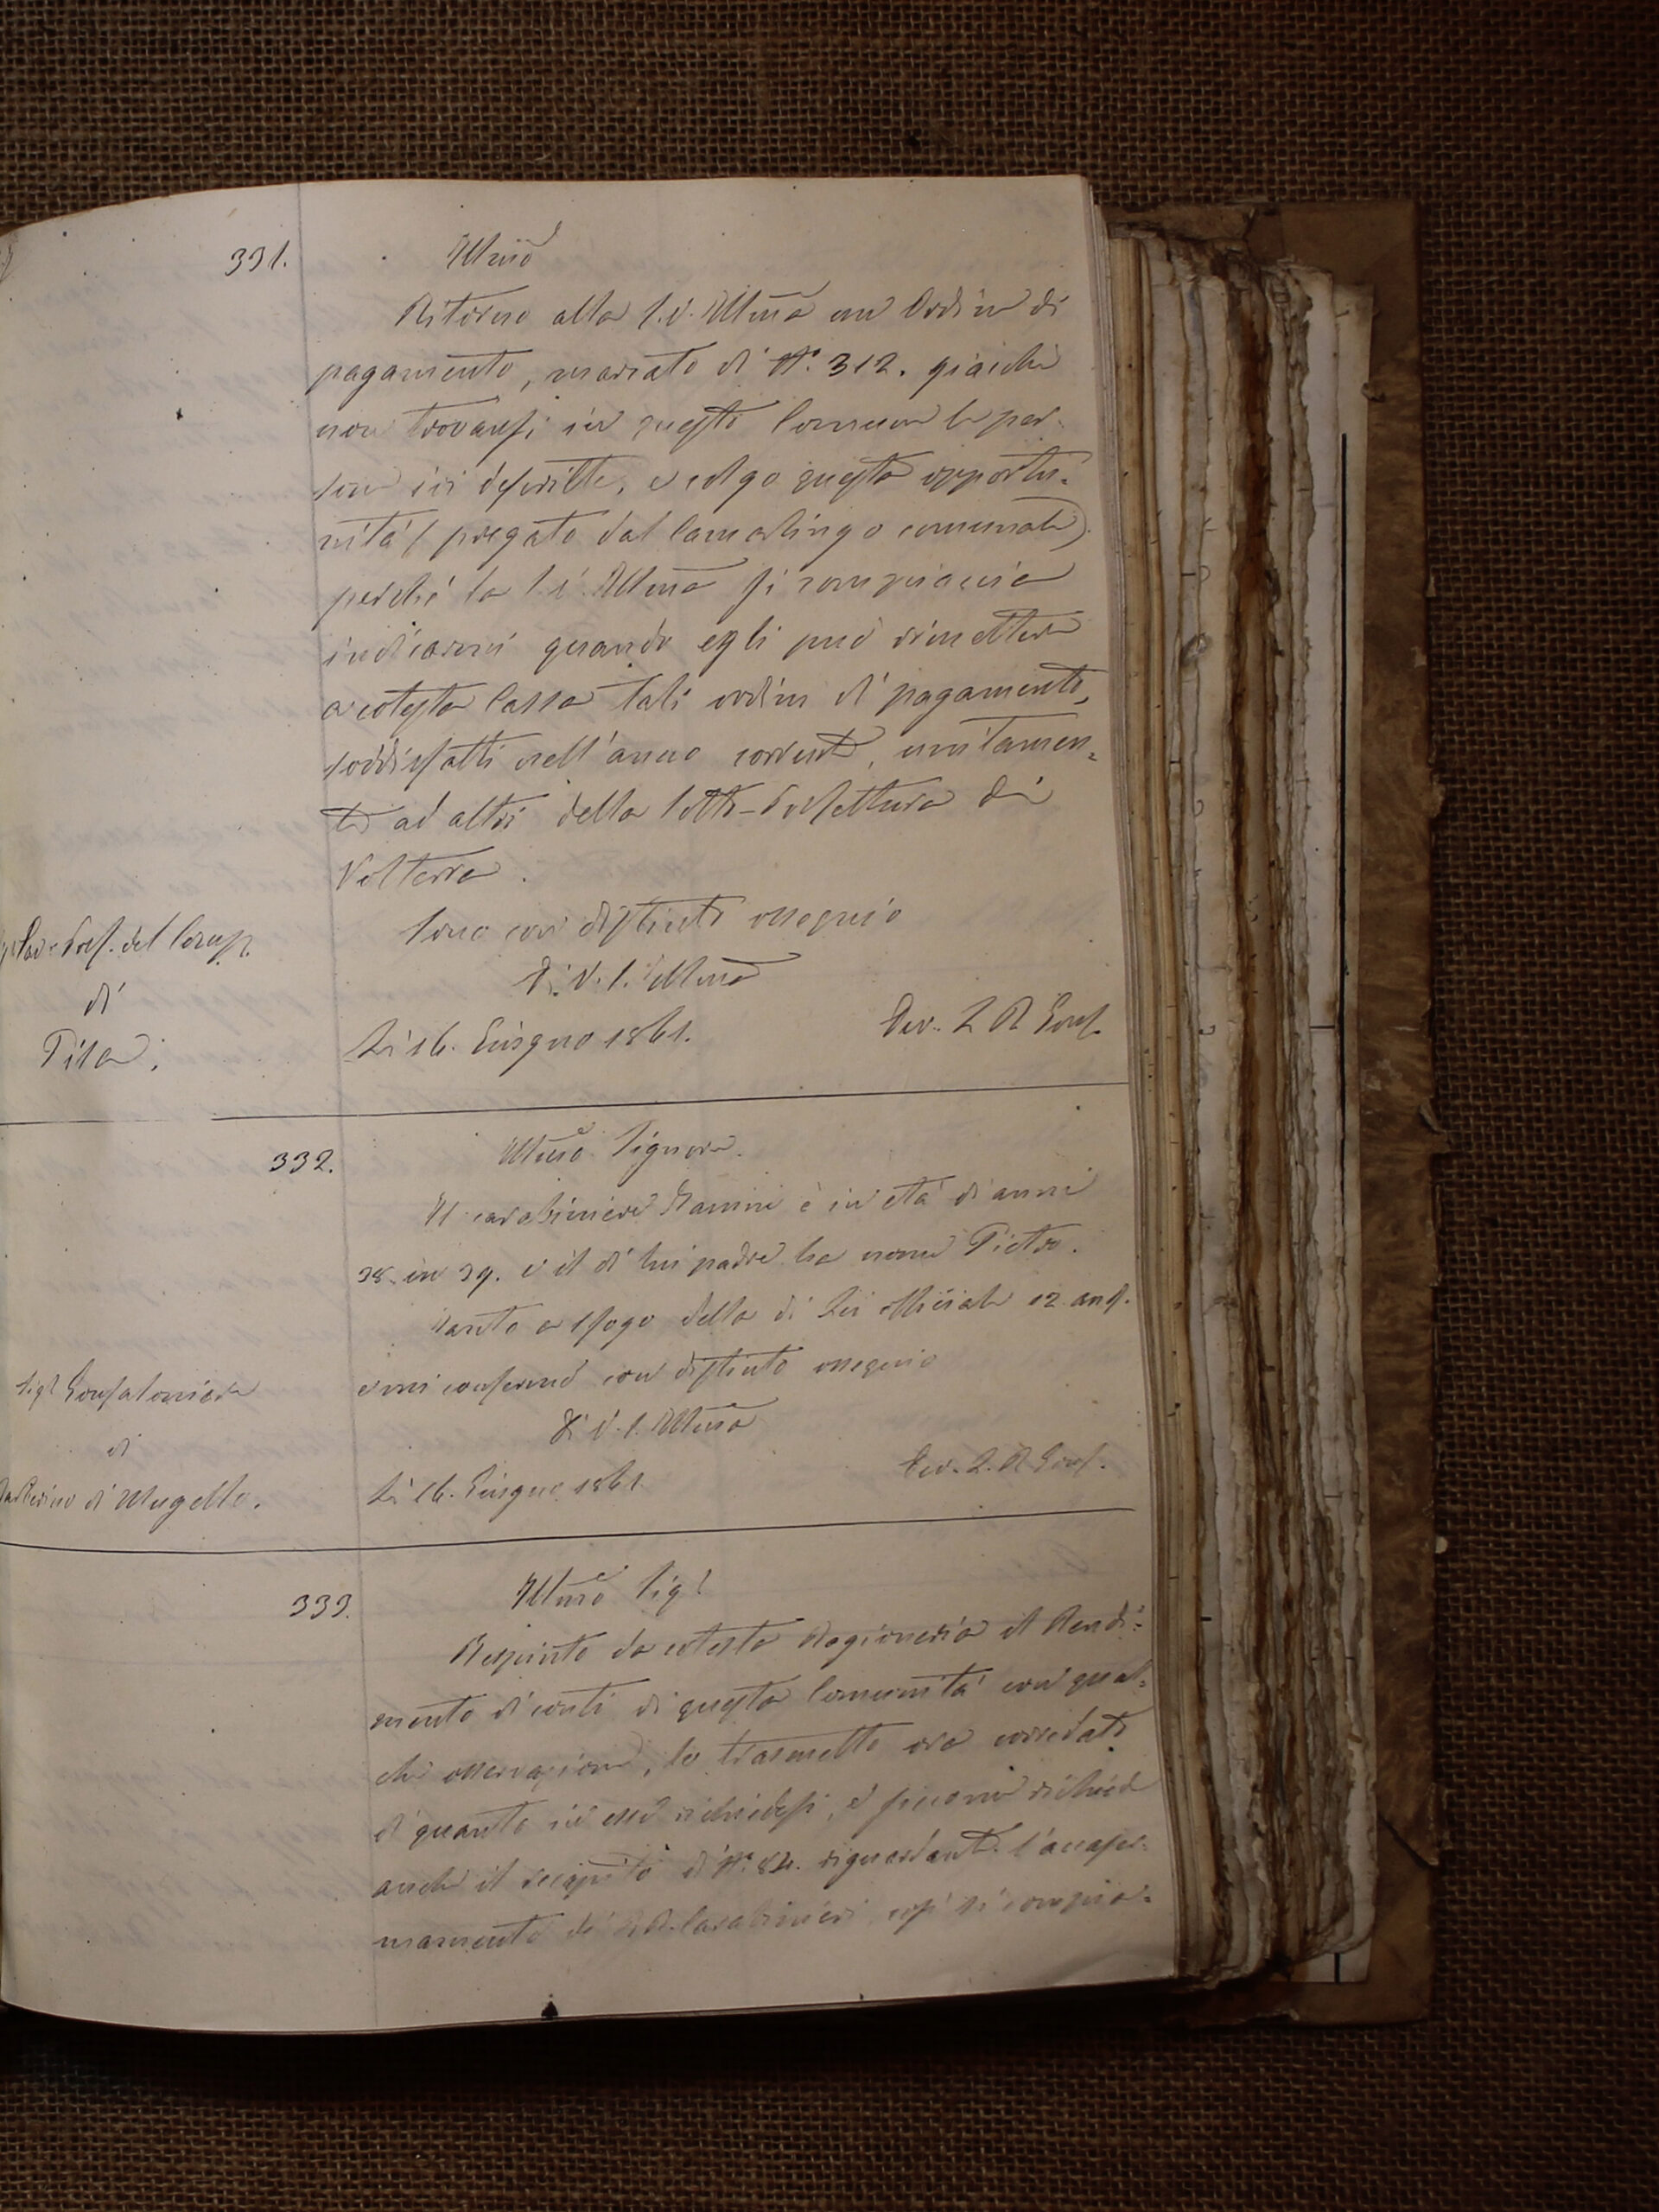 331.
Illmo
Ritorno alla S.V. Illma un Ordine di
pagamento, marcato di N°. 312. giacchè
non trovansi in questo Comune le per-
sone ivi descritte, e colgo questa opportu=
nità (pregato dal Camarlingo comunale)
perchè la S.V. Illma si compiaccia
indicarmi quando egli può rimettere
a cotesta Cassa tali ordini di pagamento,
soddisfatti nell'anno corrente, unitamen=
te ad altri della Sotto-Prefettura di
Volterra.
Sono con distinto ossequio
Di V.S. Illma
Pref. del Comp.
di
Pisa.
Li 16. Giugno 1861.
Dev. L R Gonf.
332.
Illmo Signore.
Il carabiniere Nannini è in età di anni
38. in 39. e il di lui padre ha nome Pietro.
Tanto a sfogo della di Lei officiale 12. and.
e mi confermo con distinto ossequio
Di V.S. Illma
Sigr Gonfaloniere
di
Barberino di Mugello.
Li 16. Giugno 1861
Dev. L. R Gonf.
333.
Illmo Sigr
Respinto da cotesta Ragioneria il Rendi=
mento di conti di questa Comunità con qual=
che osservazione, lo trasmetto ora corredato
di quanto in esse richiedesi, e siccome richiede
anche il recapito di N°. 84. riguardante l'accaser=
mamento de' RR. Carabinieri, così si compia=